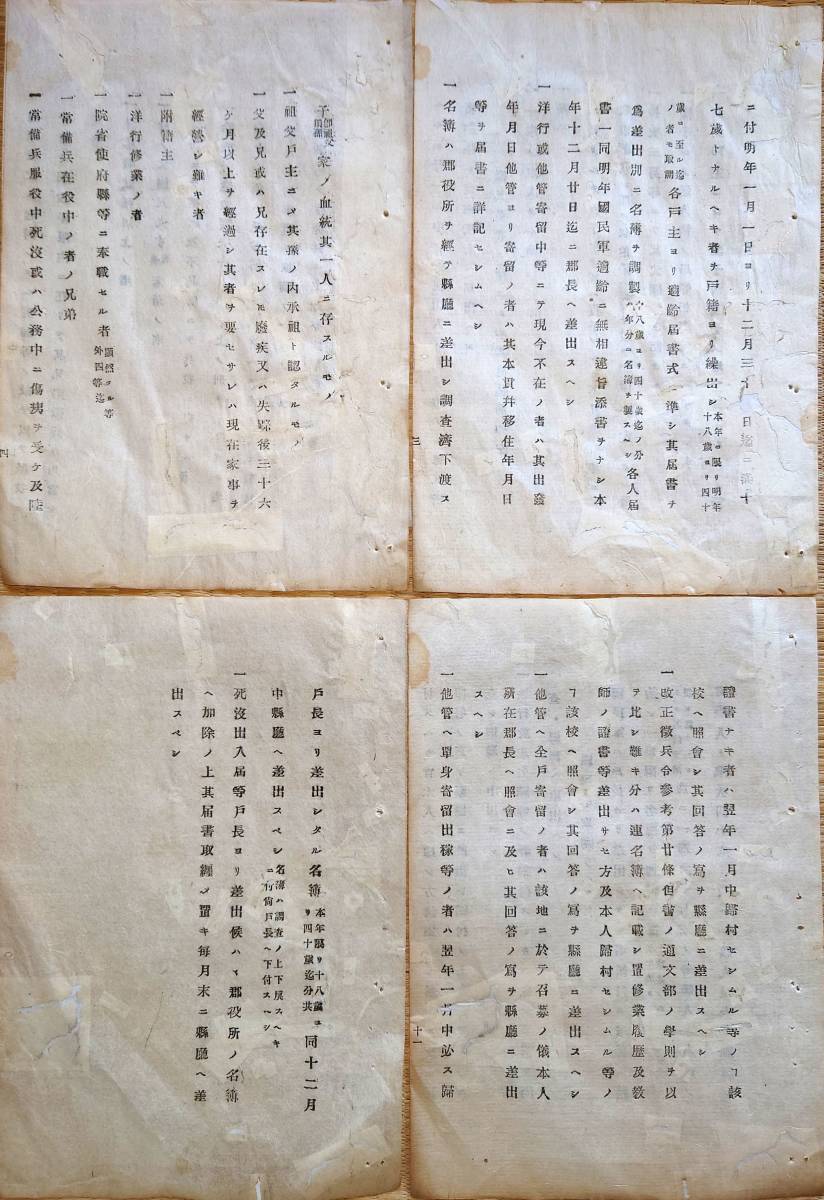 ニ付明年一月一日ヨリ十二月三十日迄ニ滿十
七歲トナルヘキ者ヲ戸籍ヨリ繰出シ本年ニ限リ明年十八歲ヨリ四十
歲ニ至ル迄ノ者モ取調各戸主ヨリ適齡届書式ニ準シ其届書ヲ
爲差出別ニ名簿ヲ調製十八歲ヨリ四十歲迄ノ分ハ年分ニ名簿ヲ製スヘシ各人届
書一同明年國民軍適齡ニ無相違旨添書ヲナシ本
年十二月廿日迄ニ郡長ヘ差出スヘシ
一洋行或他管寄留中等ニテ現今不在ノ者ハ其出發
年月日他管ヨリ寄留ノ者ハ其本貫幷移住年月日
等ヲ届書ニ詳記セシムヘシ
一名簿ハ郡役所ヲ經テ縣廳ニ差出シ調査濟下渡ス
三
家ノ血統其一人ニ存スルモノ
一祖父戸主ニテ其孫ノ内承祖ト認タルモノ
一父及兄或ハ兄存在スレモ廢疾又ハ失踪後三十六
ケ月以上ヲ經過シ其者ヲ要セサレハ現在家事ヲ
經營シ難キ者
一附籍主
一洋行修業ノ者
一院省使府縣等ニ奉職セル者等外四等迄
一常備兵在役中ノ者ノ兄弟
一常備兵服役中死沒或ハ公務中ニ傷痍ヲ受ケ及陸
四
證書ナキ者ハ翌年一月中歸村セシムル等ノヿ該
校ヘ照會シ其回答ノ寫ヲ縣廳ニ差出スヘシ
一改正徵兵令參考第廿條但書ノ通文部ノ學則ヲ以
ヲ比シ難キ分ハ連名簿ヘ記載シ置修業履歷及敎
師ノ證書等差出サセ方及本人歸村セシムル等ノ
ヿ該校ヘ照會シ其回答ノ寫ヲ縣廳ニ差出スヘシ
一他管ヘ全戸寄留ノ者ハ該地ニ於テ召募ノ儀本人
所在郡長ヘ照會ニ及ヒ其回答ノ寫ヲ縣廳ニ差出
スヘシ
一他管ヘ單身寄留出稼等ノ者ハ翌年一月中必ス歸
十一
戸長ヨリ差出シタル名簿本年限リ十八歲ヨリ四十歲迄分共同十二月
中縣廳ヘ差出スベシ名簿ハ調査ノ上下戻スヘキニ付尙戸長ヘ下付スヘシ
一死沒出入届等戸長ヨリ差出候ハヽ郡役所ノ名簿
ヘ加除ノ上其届書取纏メ置キ每月末ニ縣廳ヘ差
出スベシ